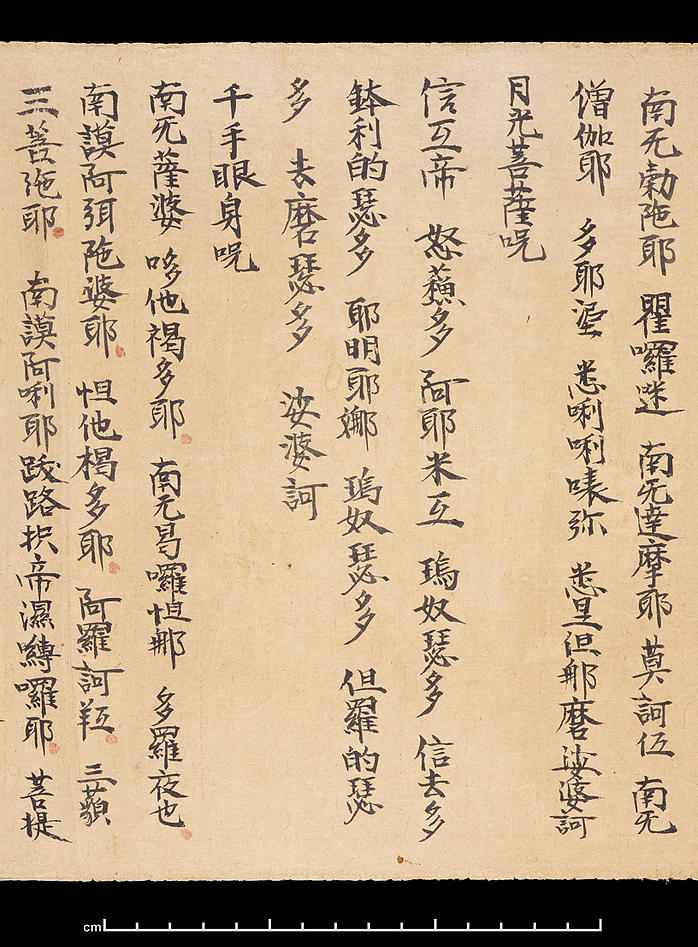 南无勒陁耶 瞿囉迷 南无達摩耶 莫訶伍 南无
僧伽耶 多耶埿 悉唎唎𠹌弥 悉里但那磨娑婆訶
月光菩薩呪
信互帝 怒蘓多 阿耶米互 瑪奴瑟多 信去多
鉢利的瑟多 耶明耶娜 瑪奴瑟多 但羅的瑟
多 去磨瑟多 娑婆訶
千手眼身呪
南无薩婆 哆他褐多耶 南无曷囉怛那 多羅夜也
南謨阿弭陁婆耶 怛他楬多耶 阿羅訶 三藐
三菩陁耶 南謨阿唎耶跋路枳帝濕嚩囉耶 菩提
cm